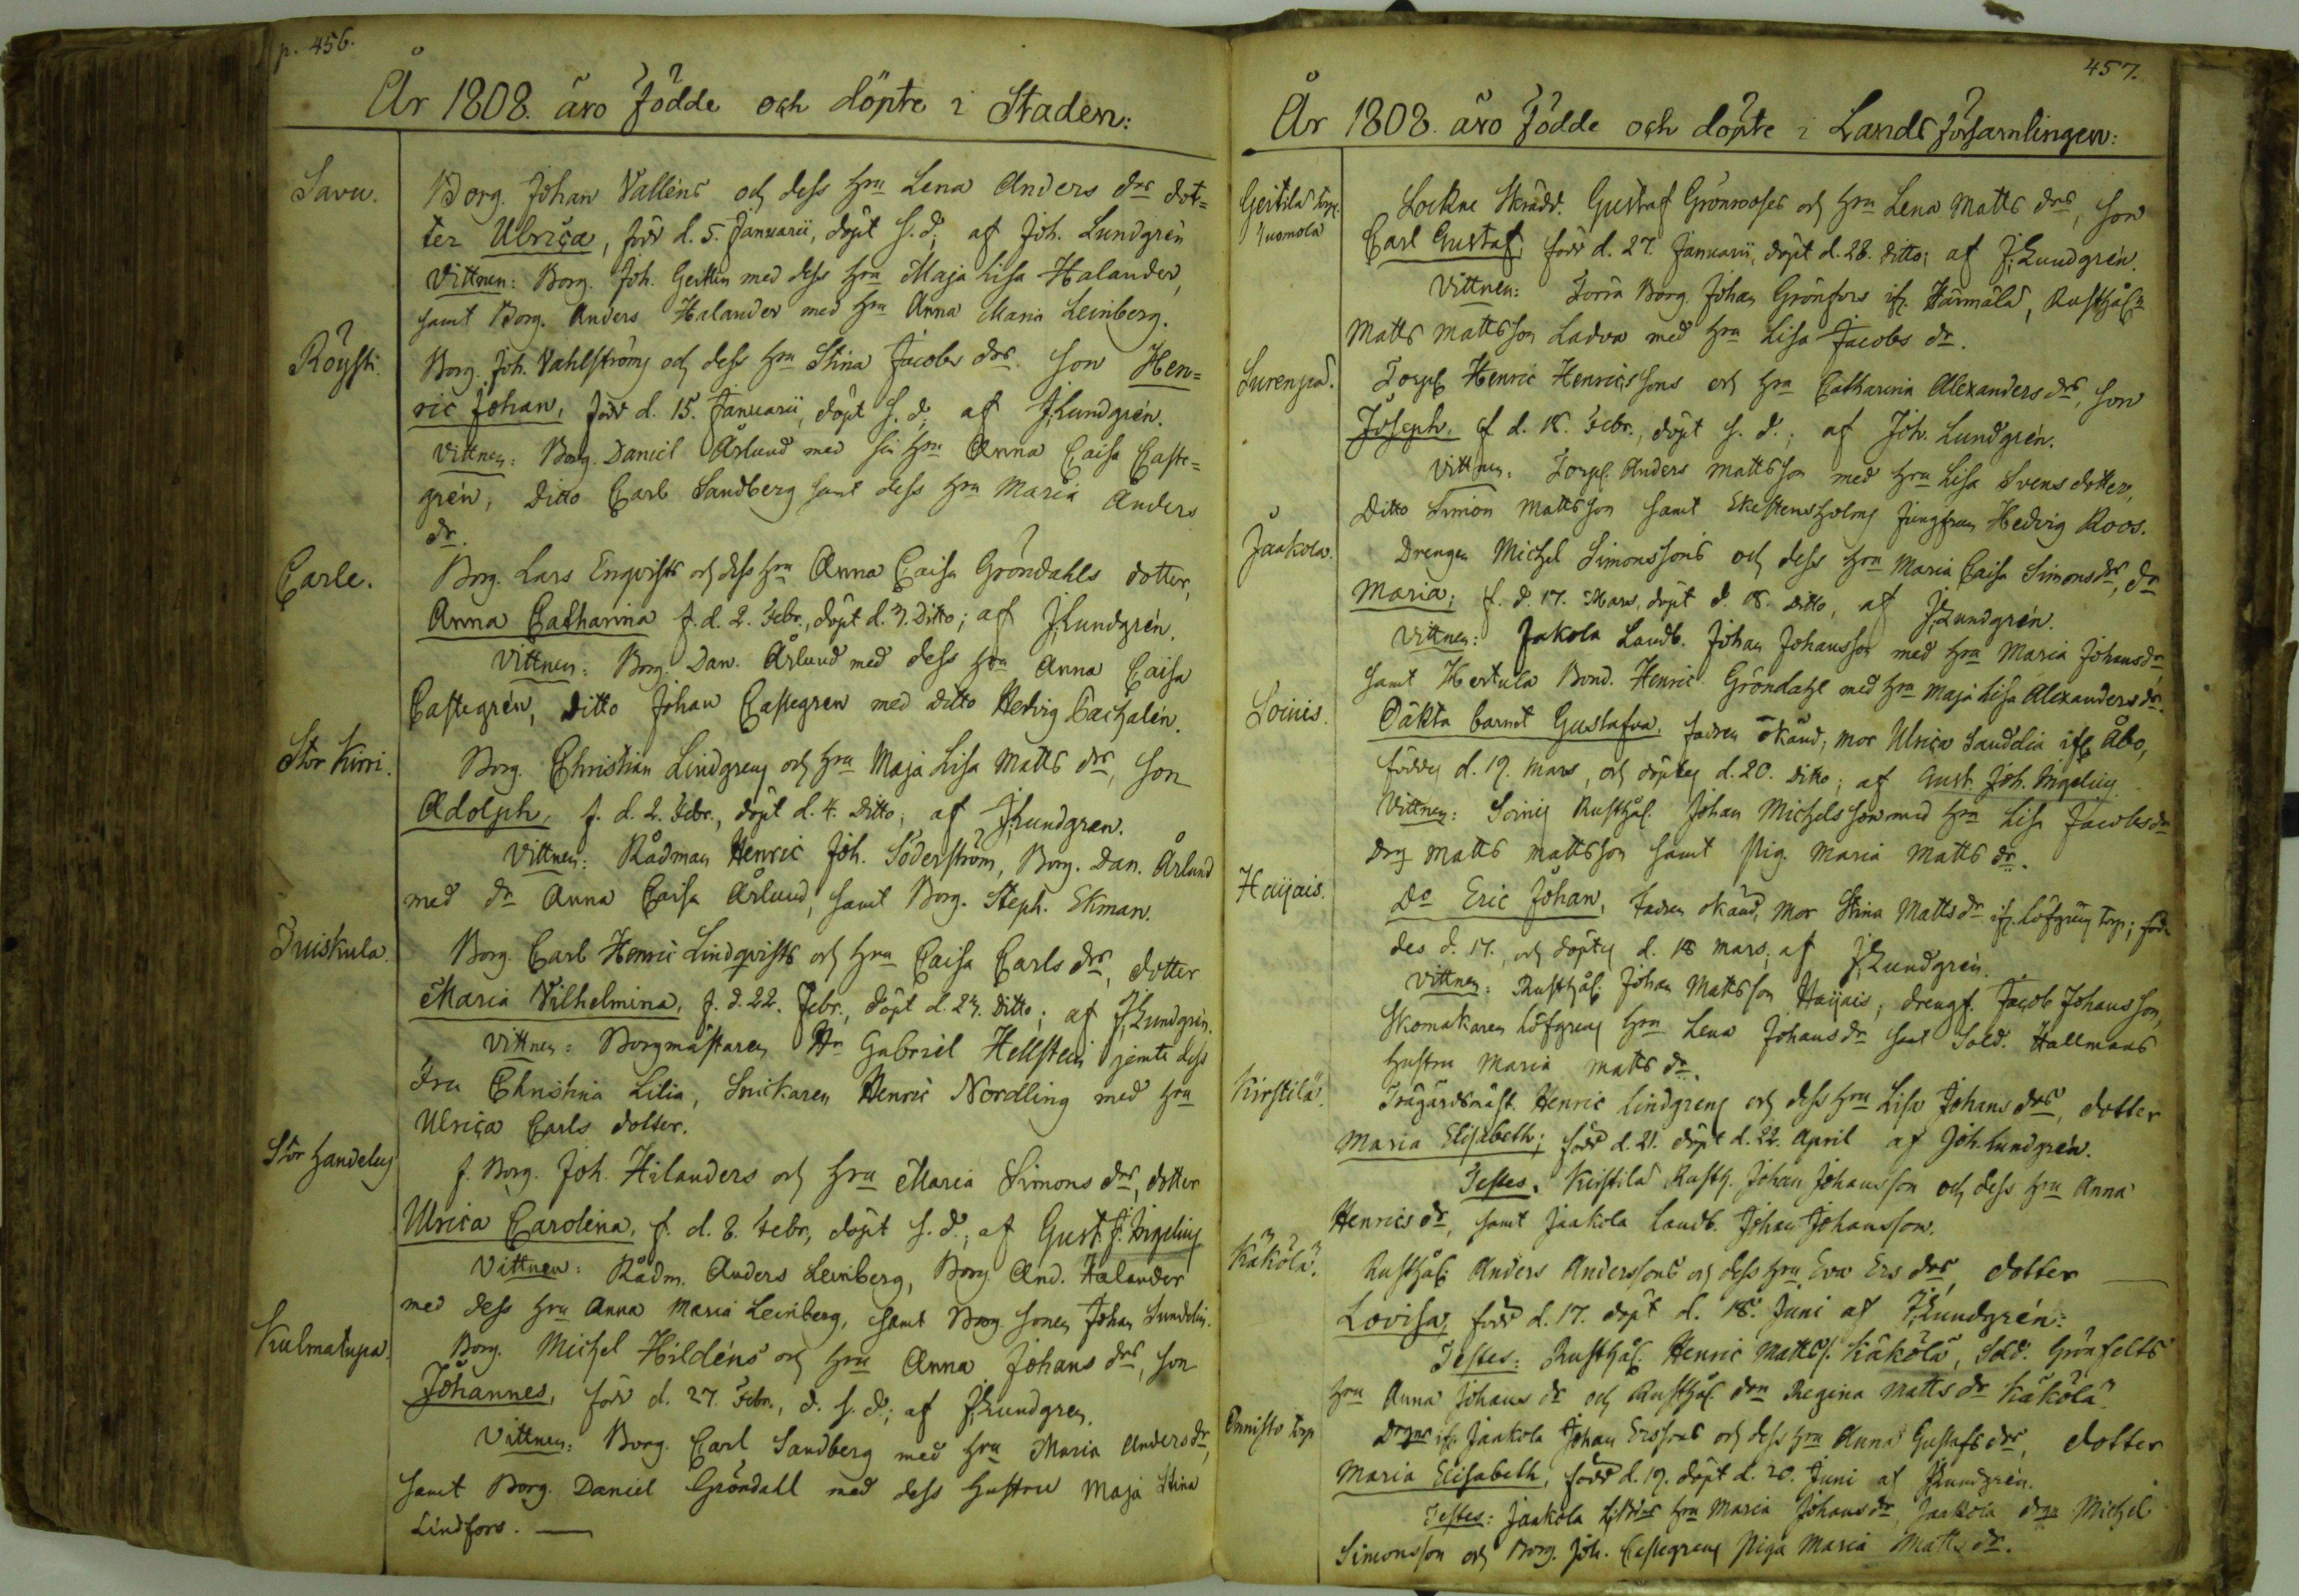 p. 456.
År 1808. äro födde och döpte i Staden:
Savu.
Borg. Johan Valléns och dess hru Lena Anders drs dot=
ter Ulrica, född d. 5. Januarii, döpt s. d; af Joh. Lundgrén
Vittnen: Borg. Joh. Geitlin med dess hru Maja Lisa Halander,
samt Borg. Anders Halander med hru Anna Maria Leinberg.
Röysti.
Borg. Joh. Vahlströms och dess hru Stina Jacobs drs. son Hen=
ric Johan, född d. 15. Januarii, döpt s. d; af J. Lundgrén.
Vittnen: Borg. Daniel Årlund med sin hru Anna Caisa Caste=
grén, Ditto Carl Sandberg samt dess hru Maria Anders
dr.
Carle.
Borg. Lars Enqvists och dess hru Anna Caisa Gröndahls dotter,
Anna Catharina f. d. 2. Febr., döpt d. 3. Ditto; af J. Lundgrén.
Vittnen: Borg. Dan. Årlund med dess hru Anna Caisa
Castegrén, ditto Johan Castegren med ditto Hedvig Cajalén.
Stor Kirri.
Borg. Christian Lindgrens och hru Maja Lisa Matts drs, son
Adolph, f. d. 2. Febr., döpt d. 4. Ditto; af J. Lundgren.
Vittnen: Rådman Henric Joh. Söderström, Borg. Dan. Årlund
med dr Anna Caisa Årlund, samt Borg. Steph. Ekman.
Tuiskula.
Borg. Carl Henric Lindqvists och hru Caisa Carls drs, dotter
Maria Vilhelmina, f. d. 22. Febr., döpt d. 23. Ditto; af J. Lundgrén.
Vittnen: Borgmästaren Hr Gabriel Hellsten jemte dess
Fru Christina Lilia, Snickaren Henric Nordling med hru
Ulrica Carls dotter.
Stor Handelus
f. Borg. Joh. Hilanders och hru Maria Simons drs, dotter
Ulrica Carolina, f. d. 8. Febr., döpt s. d.; af Gust. J. Ingelius
Vittnen: Rådm. Anders Leinberg, Borg. And. Halander
med dess hru Anna Maria Leinberg, samt Borg. sonen Johan Sundelin.
Kulmatupa.
Borg. Michel Hildéns och hru Anna Johans drs, son
Johannes, född d. 27. Febr., d. s. d.; af J. Lundgren.
Vittnen: Borg. Carl Sandberg med hru Maria Andersdr,
samt Borg. Daniel Gröndall med dess hustru Maja Stina
Lindfors.
457.
År 1808. äro födde och döpte i Lands församlingen:
Geitilä torp.
Juomola
Sockne Skrädd. Gustaf Grönroses och hru Lena Matts drs, son
Carl Gustaf, född d. 27. Januarii, döpt d. 28. ditto; af J. Lundgrén.
Vittnen: Förra Borg. Johan Grönfors ifr. Härmälä, Rusthål.
Matts Mattsson Ladva med hru Lisa Jacobs dr.
Lurenpää.
Torp. Henric Henricssons och hru Catharina Alexanders drs, son
Joseph, f d. 18. Febr., döpt s. d.; af Joh. Lundgrén.
Vittnen: Torp. Anders Mattsson med hru Lisa Svens dotter,
Ditto Simon Mattsson samt Ekestensholms Jungfrun Hedvig Roos.
Jaakola.
Drengen Michel Simonssons och dess hru Maria Caisa Simonsdrs, dr
Maria; f. d. 17. Mars, döpt d. 18. Ditto, af J. Lundgrén.
Vittnen: Jakola Landb. Johan Johansson med hru Maria Johansdr,
samt Hertula Bond. Henric Gröndahl med hru Maja Lisa Alexandersdr.
Soinis.
Oäkta barnet Gustafva, fadren okänd, mor Ulrica Sandelia ifr Åbo,
föddes d. 19. Mars, och döptes d. 20. ditto; af Gust. Joh. Ingelius.
Vittnen: Soinis Rusthål. Johan Michelsson med hru Lisa Jacobsdr
Drg Matts Mattsson samt Pig. Maria Matts dr.
Haijais.
Do Eric Johan, fadren okänd, mor Stina Mattsdr ifr. Löfgrens torp; föd=
des d. 17., och döptes d. 18 Mars; af J. Lundgrén.
Vittnen: Rusthål. Johan Mattsson Haijais, Drengf. Jacob Johansson,
Skomakaren Löfgrens hru Lena Johansdr samt Sold. Hallmans
hustru Maria Matts dr.
Kirstilä.
Trägårdsmäst. Henric Lindgrens och dess hru Lisa Johans drs, dotter
Maria Elisabeth; född d. 21. döpt d. 22. April af Joh. Lundgrén.
Testes. Kirstilä Rusth. Johan Johansson och dess hru Anna
Henrics dr, samt Jaakola Landb. Johan Johansson.
Käkölä.
Rusthål. Anders Anderssons och dess hru Eva Ers drs, dotter
Lovisa, född d. 17. döpt d. 18. Juni af J. Lundgrén:
Testes: Rusthål. Henric Mattss. Käkölä, Sold. Grönfelts
hru Anna Johans dr och Rusthål. drn Regina Matts dr Käkölä.
Onnisto torp
Drgns ifr. Jaakola Johan Erssons och dess hru Anna Gustafs drs, dotter
Maria Elisabeth, född d. 19. döpt d. 20. Juni af J. Lundgrén.
Testes: Jaakola hru Maria Johansdr, Jaakola drgn Michel
Simonsson och Borg. Joh. Castegrens Piga Maria Matts dr.